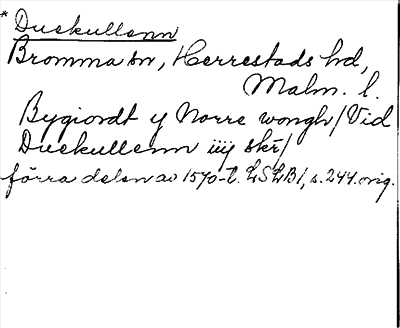 * Duekullenn
Bromma sn, Herrestads hd,
Malm. l.
Bygiordt y Norre wongh/Vid
Duekullenn iiij skr/
förra delen av 1570-t. LSLB1, s.244.orig.